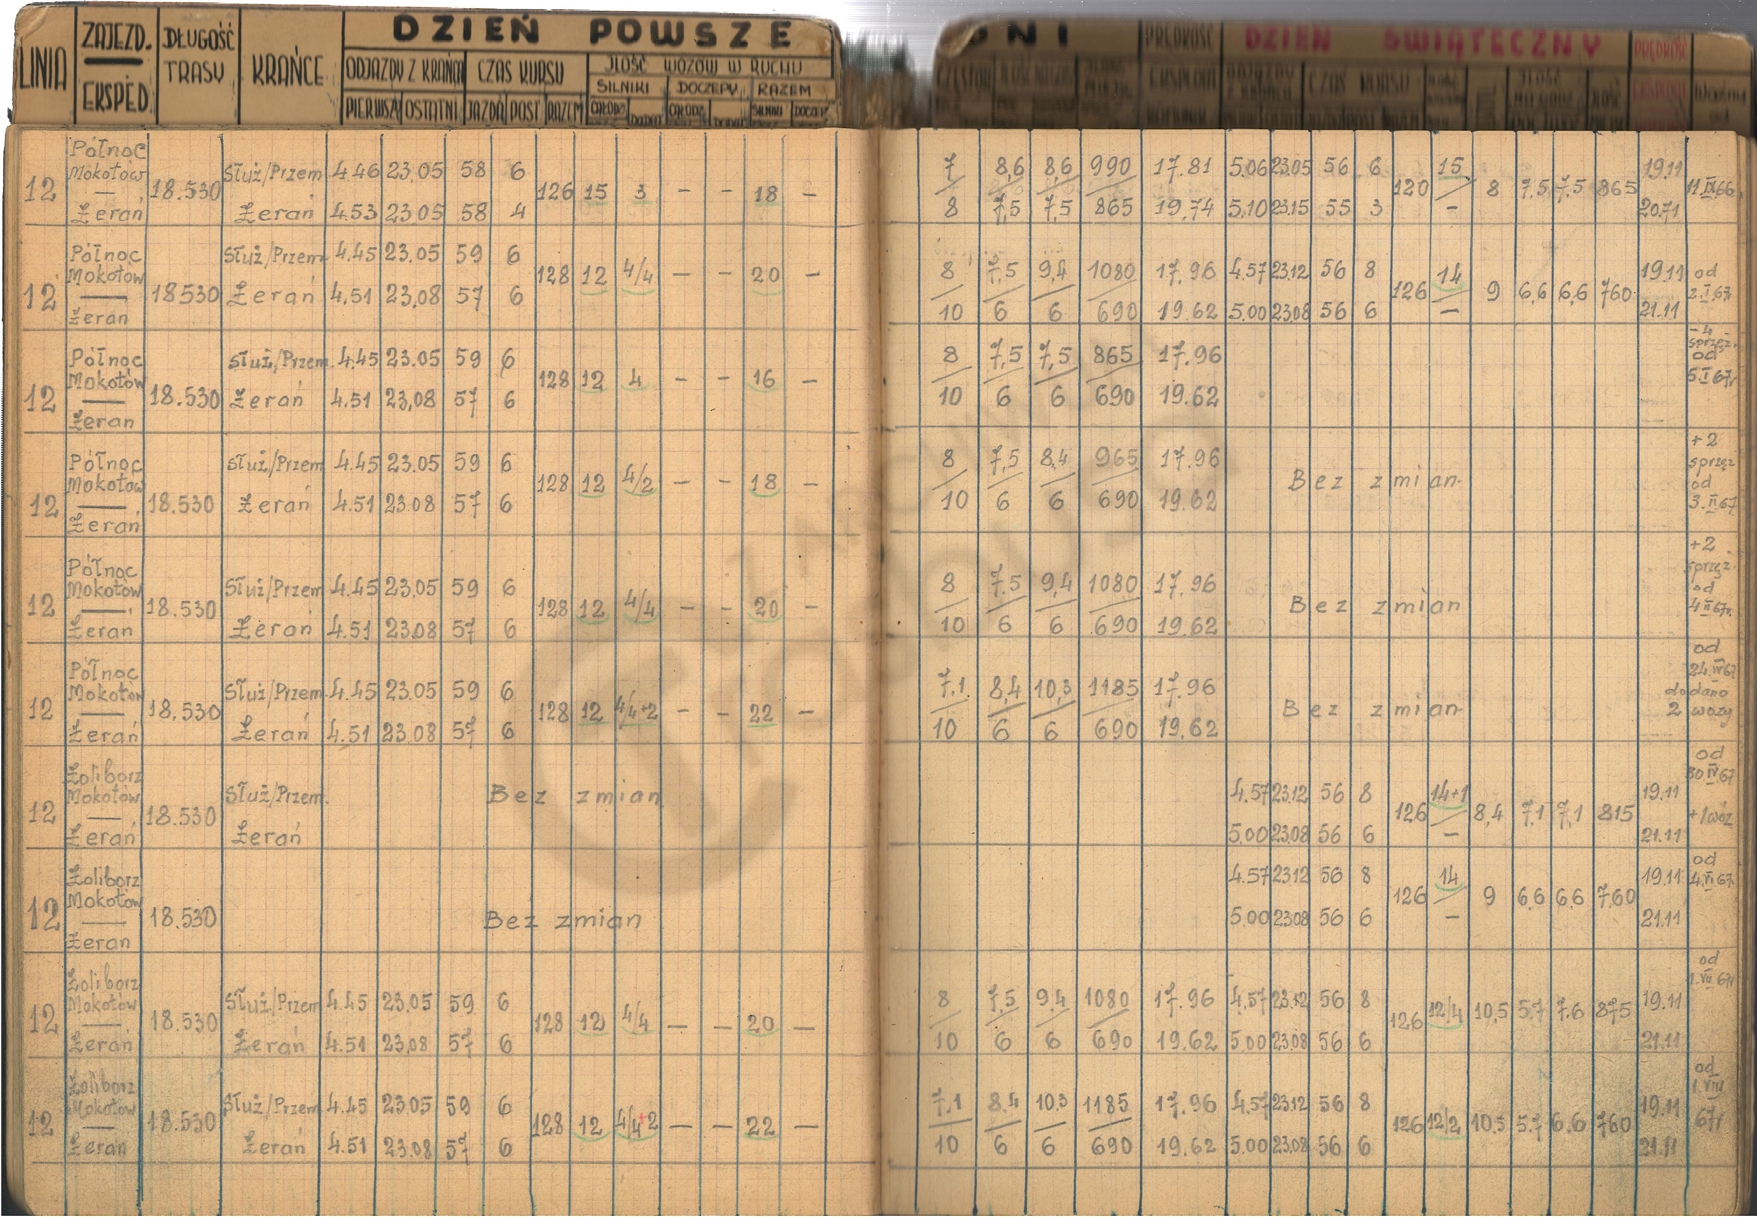 LINIA ZAJEZD. EKSPED. DŁUGOŚĆ TRASY KRAŃCE DZIEŃ POWSZE DNI PRĘDKOŚĆ DZIEŃ ŚWIĄTECZNY PRĘDKOŚĆ
ODJAZDY Z KRAŃCA CZAS KURSU ILOŚĆ WOZÓW W RUCHU
SILNIKI DOCZEPY RAZEM CZAS KURSU
PIERWSZY OSTATNI JAZDA POST RAZEM
Północ
Mokotów Służ/Przem 4.46 23.05 58 6 7 8,6 8,6 990 17.81 5.06 23.05 56 6 15 19.11
12 — 18.530 126 15 3 – – 18 – 120 8 7,5 7,5 865 11.IX.66
Żerań Żerań 4.53 23.05 58 4 8 7,5 7,5 865 19,74 5.10 23.15 55 3 – 20.71
Północ Służ/Przem 4.45 23.05 59 6
Mokotów 128 12 4/4 – – 20 – 8 7,5 9,4 1080 17.96 4.57 23.12 56 8 14 19.11 od
12 — 18530 Żerań 4.51 23,08 57 6 126 9 6,6 6,6 760 2.I.67r
Żerań 10 6 6 690 19.62 5.00 23.08 56 6 – 21.11
Północ Służ/Przem. 4.45 23.05 59 6 8 7,5 7,5 865 17.96 -4 sprzęż. od
Mokotów 128 12 4 – – 16 – 5.I.67r
12 — 18.530 Żerań 4.51 23,08 57 6 10 6 6 690 19.62
Żerań
Północ Służ/Przem 4.45 23.05 59 6 8 7,5 8,4 965 17.96 +2 sprzęż
Mokotów 128 12 4/2 – – 18 – Bez zmian. od
12 — 18.530 Żerań 4.51 23.08 57 6 10 6 6 690 19.62 3.II.67
Żerań
Północ +2 sprzęż.
Mokotów Służ/Przem 4.45 23,05 59 6 8 7.5 9,4 1080 17.96 od
12 — 18.530 128 12 4/4 – – 20 – Bez zmian 4.II.67r.
Żerań Żerań 4.51 23.08 57 6 10 6 6 690 19.62
Północ od
Mokotów Służ/Przem. 4.45 23.05 59 6 7.1 8,4 10,3 1185 17.96 24.IV.67
12 — 18,530 128 12 4/4+2 – – 22 – Bez zmian dodano
Żerań Żerań 4.51 23.08 57 6 10 6 6 690 19.62 2 wozy
Żoliborz od
Mokotów Służ/Przem. Bez zmian 4.57 23.12 56 8 14+1 19.11 30.IV.67
12 — 18.530 126 8,4 7,1 7,1 815 +1 wóz
Żerań Żerań 5.00 23.08 56 6 – 21.11
Żoliborz 4.57 23.12 56 8 14 19.11 od
Mokotów 126 9 6,6 6,6 760
12 — 18.530 Bez zmian 5.00 23.08 56 6 – 21.11
Żerań
Żoliborz od
Mokotów Służ/Przem 4.45 23.05 59 6 8 7,5 9,4 1080 17.96 4.57 23.12 56 8 12/4 10,5 5.7 7.6 875 19.11 1.VII.67r
12 — 18.530 128 12 4/4 – – 20 – 126
Żerań Żerań 4.51 23,08 57 6 10 6 6 690 19.62 5.00 23.08 56 6 21.11
Żoliborz od
Mokotów Służ/Przem 4.45 23.05 59 6 7,1 8,4 10.3 1185 17.96 4.57 23.12 56 8 19.11 1.VIII
12 — 18.530 128 12 4/4+2 – – 22 – 126 12/2 10.5 5.7 6,6 760 67r
Żerań Żerań 4.51 23.08 57 6 10 6 6 690 19.62 5.00 23.08 56 6 21.11